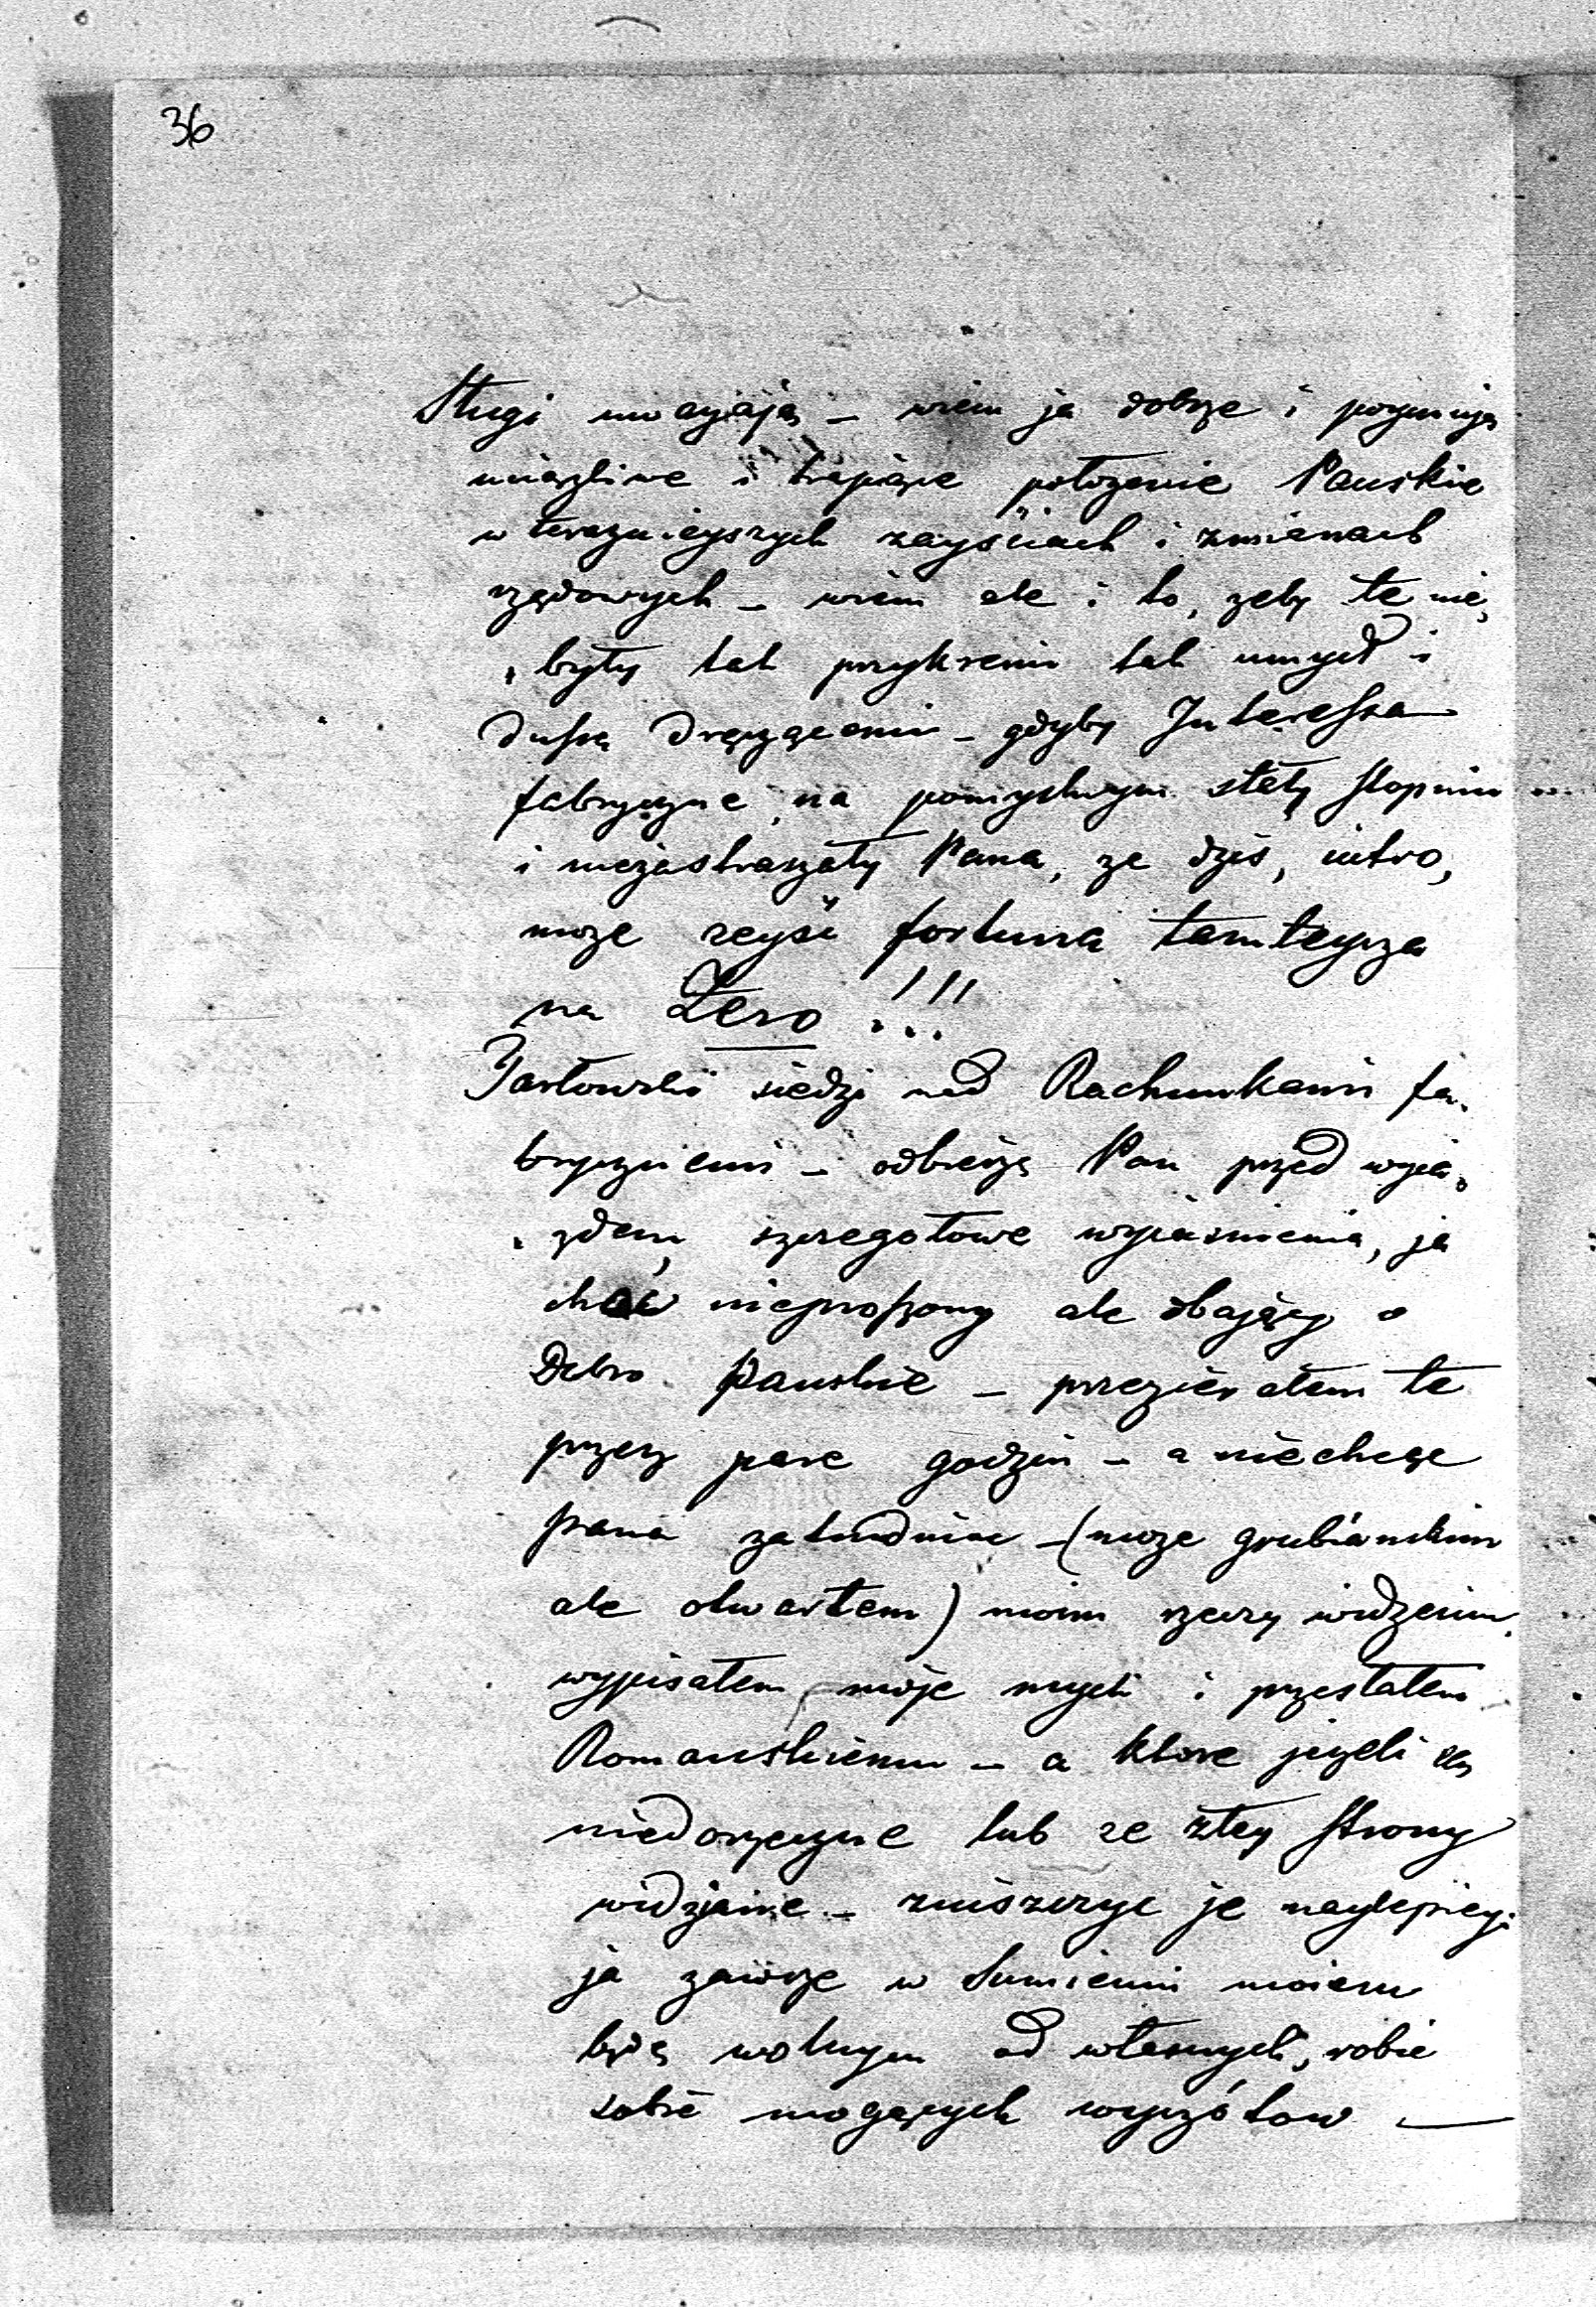 36
Sługi uwayają – wiem ja dobrze i poymuję
uciążliwe i trapiące położenie Pańskie
w teraznieyszych zayściach i zmianach
rządowych – wiem ale i to, zeby te nie„
„były tak przykremi tak umysł i
duszę dręczącemi – gdyby Interessa
fabryczne na pomyslnym stały stopniu
i niezastraszały Pana, ze dziś, iutro,
moze zeyść fortuna tamteysza
na Zero !!!
Jasłowski siedzi nad Rachunkami fa„
brycznemi – odbierze Pan przed wyia„
„zdem, szczegołowe wyiasnienia, ja
choć nieproszony ale dbający o
Dobro Pańskie – przezierałem te
przez pare godzin – a niechcąc
pana zatrudniac – (moze grubiańskim
ale otwartem) moim rzeczy widzeniem
wypisałem moje mysli i przesłałem
Romanskiemu – a ktore jezeli są
niedorzeczne lub ze złey strony
widziane – zniszczyc je naylepiey:
ja zawsze w Sumieniu moiem
będę wolnym od własnych, robic
sobie mogących wyrzótow —